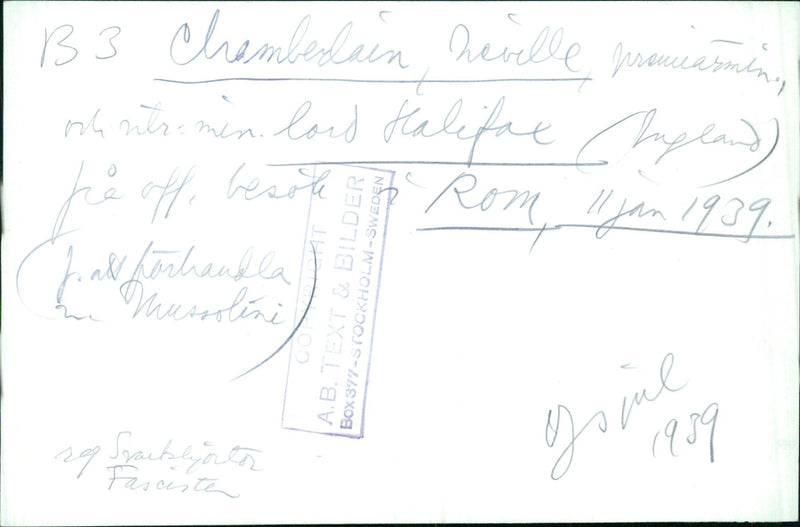 B 3 Chamberlain, Neville, premiärmin.,
och utr: min. lord Halifax (England)
på off. besök i Rom, 11 jan 1939.
(f. att förhandla
m. Mussolini)
COPYRIGHT
A.B. TEXT & BILDER
Box 377-STOCKHOLM-SWEDEN
jul
1939
Svartskjortor
Fascister